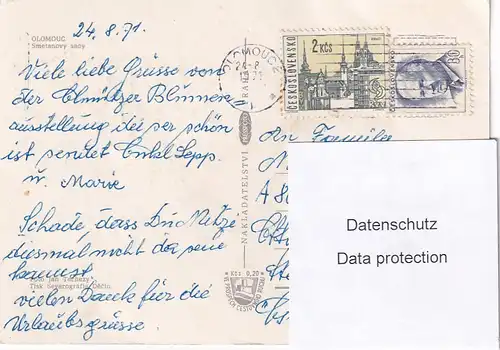 24. 8. 71.
OLOMOUC
Smetanovy sady
Viele liebe Grüsse von
der Olmützer Blumen
ausstellung die sehr schön
ist sendet Onkel Sepp
u. Marie
Schade, dass Du Mitzi
diesmal nicht da seine
kannst.
vielen Dank für die
Urlaubsgrüsse.
Foto Jan
Tisk Severografia Děčín
NAKLADATELSTVÍ
Kčs 0,20
OLOMOUC
24.-8.
71
2 KČS
ČESKOSLOVENSKO
PRAHA
ČESKOSLOVENSKO
An Familie
A 80
Datenschutz
Data protection